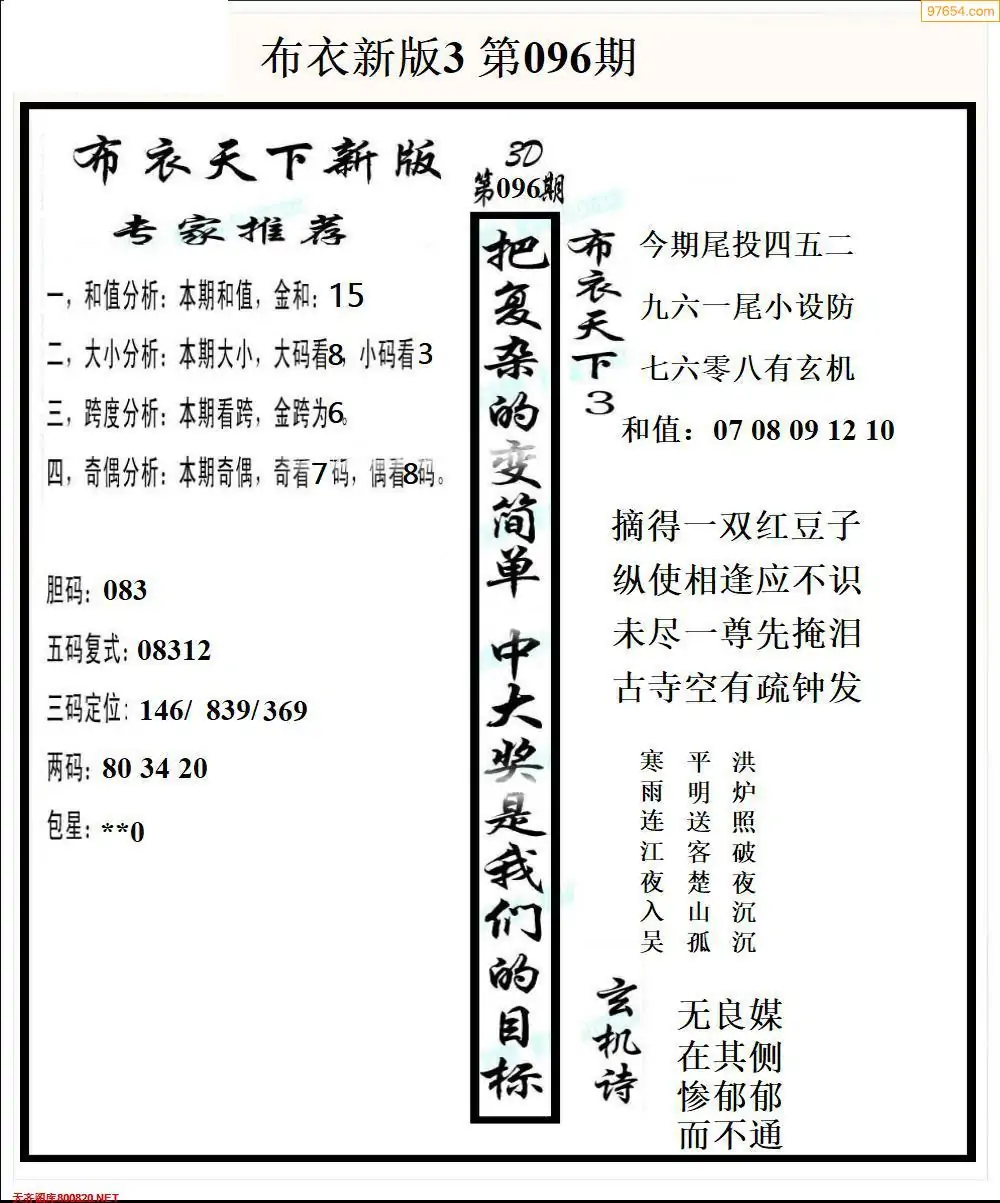 97654.com
布衣新版3 第096期
布衣天下新版
专家推荐
一，和值分析：本期和值，金和：15
二，大小分析：本期大小，大码看8，小码看3
三，跨度分析：本期看跨，金跨为6。
四，奇偶分析：本期奇偶，奇看7码，偶看8码。
胆码：083
五码复式：08312
三码定位：146/ 839/369
两码：80 34 20
包星：**0
3D
第096期
把复杂的变简单 中大奖是我们的目标
布衣天下3
今期尾投四五二
九六一尾小设防
七六零八有玄机
和值：07 08 09 12 10
摘得一双红豆子
纵使相逢应不识
未尽一尊先掩泪
古寺空有疏钟发
洪炉照破夜沉沉
平明送客楚山孤
寒雨连江夜入吴
玄机诗
无良媒
在其侧
惨郁郁
而不通
天齐图库800820.NET